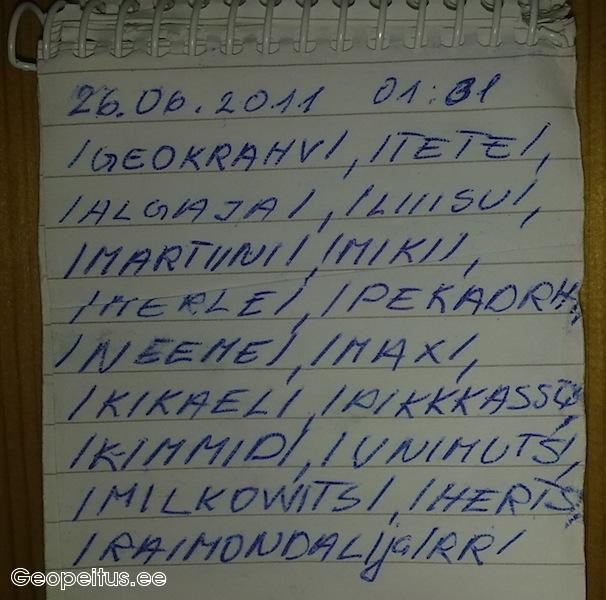 26.06.2011 01:31
/GEOKRAHV/, /TETE/,
/ALGAJA/, /LIIISU/,
/MARTIINI/, /MIKI/,
/MERLE/, /PEKADRH,
/NEEME/, /MAX/,
/KIKAEL/,
/KIMMID/, /UNIMUTS/,
/MILKOWITS/, /HERTS
/RAIMONDAL/ja/RR/
Geopeitus.ee